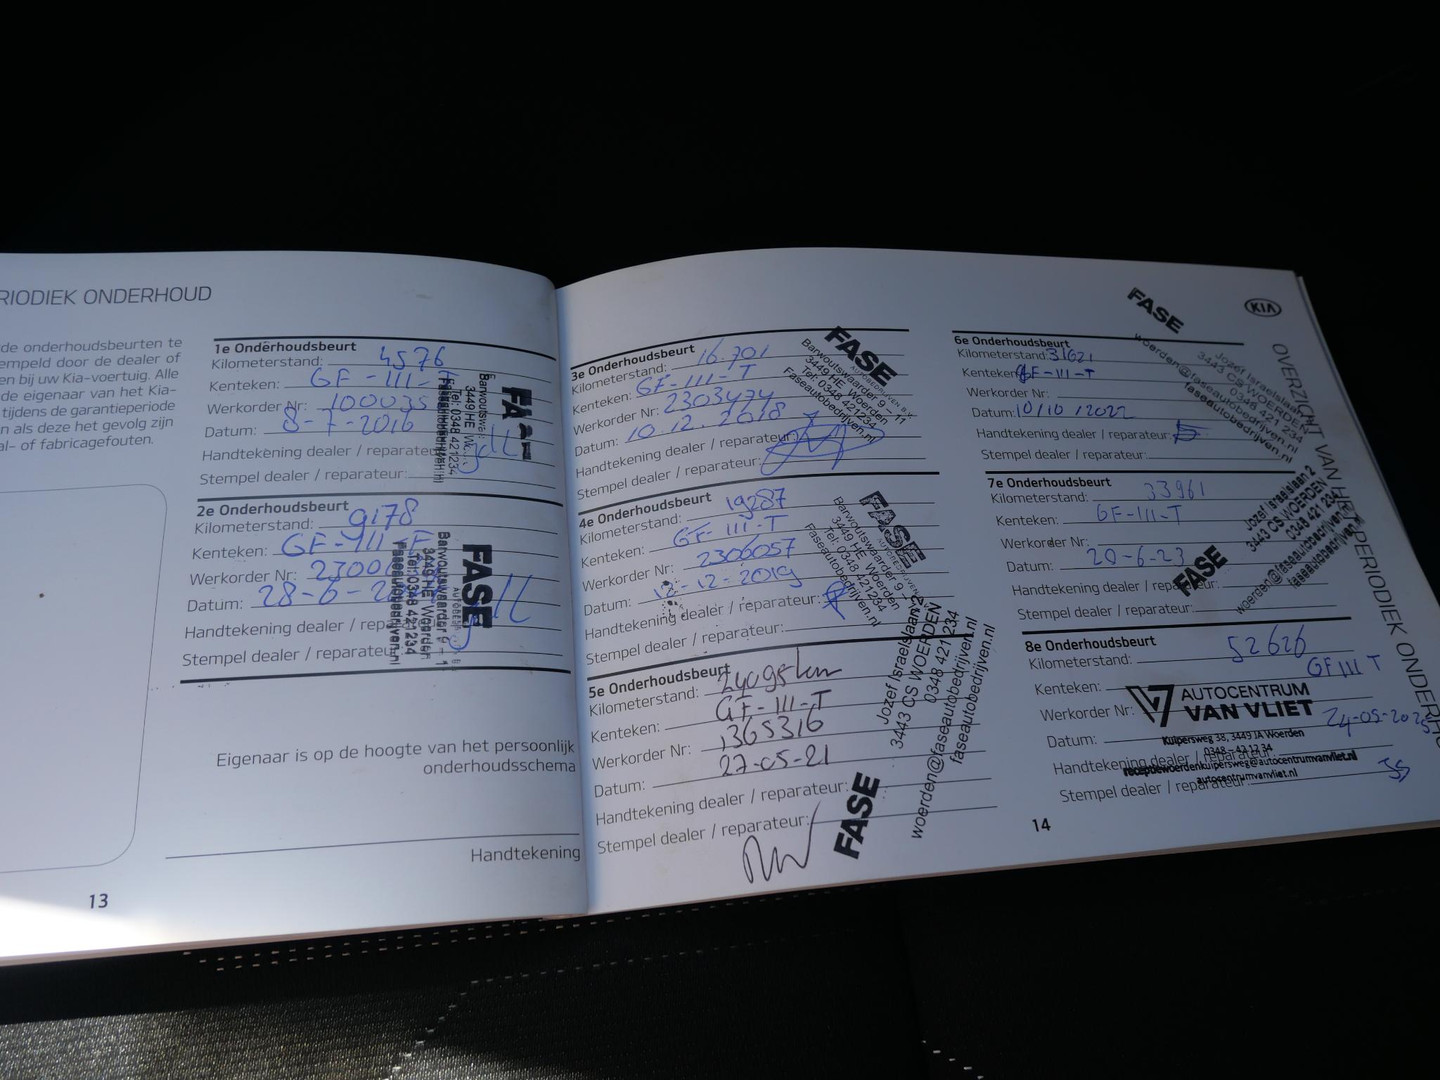 RIODIEK ONDERHOUD
de onderhoudsbeurten te
empeld door de dealer of
en bij uw Kia-voertuig. Alle
de eigenaar van het Kia-
tijdens de garantieperiode
n als deze het gevolg zijn
al- of fabricagefouten.
1e Onderhoudsbeurt
Kilometerstand: 4576
Kenteken: GF-111-
Werkorder Nr: 100035
Datum: 8-7-2016
Handtekening dealer / reparateur
Stempel dealer / reparateur:
Tel: 0348 421234
2e Onderhoudsbeurt
Kilometerstand: 9178
Kenteken: GF-111-
Werkorder Nr: 2300
Datum: 28-6-
Handtekening dealer / repara
Stempel dealer / reparateur
FASE
Barwoutswaarder 9 - 1
3449 HE Woerden
Tel: 0348 421234
Faseautobedrijven.nl
Eigenaar is op de hoogte van het persoonlijk
onderhoudsschema
Handtekening
13
3e Onderhoudsbeurt
Kilometerstand: 16.701
Kenteken: GF-111-T
Werkorder Nr: 2303474
Datum: 10.12.2018
Handtekening dealer / reparateur:
Stempel dealer / reparateur:
FASE
AUTOBEDRIJVEN B.V.
Barwoutswaarder 9 - 11
3449 HE Woerden
Tel: 0348 421234
Faseautobedrijven.nl
4e Onderhoudsbeurt
Kilometerstand: 19287
Kenteken: GF-111-T
Werkorder Nr: 2306057
Datum: 12-12-2019
Handtekening dealer / reparateur:
Stempel dealer / reparateur:
FASE
AUTOBEDRIJVEN
Barwoutswaarder 9 -
3449 HE Woerden
Tel: 0348 421234
Faseautobedrijven.nl
5e Onderhoudsbeurt
Kilometerstand: 24095km
Kenteken: GF-111-T
Werkorder Nr: 1365316
Datum: 27-05-21
Handtekening dealer / reparateur:
Stempel dealer / reparateur:
FASE
Jozef Israelslaan 2
3443 CS WOERDEN
0348 421 234
woerden@faseautobedrijven.nl
faseautobedrijven.nl
KIA
6e Onderhoudsbeurt
Kilometerstand: 31621
Kenteken: GF-111-T
Werkorder Nr:
Datum: 10/10/2022
Handtekening dealer / reparateur:
Stempel dealer / reparateur:
FASE
Jozef Israelslaan
3443 CS WOERDEN
0348 421 234
woerden@faseautobedrijven.nl
faseautobedrijven.nl
7e Onderhoudsbeurt
Kilometerstand: 33961
Kenteken: GF-111-T
Werkorder Nr:
Datum: 20-6-23
Handtekening dealer / reparateur:
Stempel dealer / reparateur:
FASE
Jozef Israelslaan 2
3443 CS WOERDEN
0348 421 234
woerden@faseautobedrijven.nl
faseautobedrijven.nl
8e Onderhoudsbeurt
Kilometerstand: 52626
Kenteken: GF111T
Werkorder Nr:
Datum: 24-05-202
Handtekening dealer / reparateur:
Stempel dealer / reparateur:
AUTOCENTRUM
VAN VLIET
Kuipersweg 38, 3449 JA Woerden
0348 - 42 12 34
receptiewoerdenkuipersweg@autocentrumvanvliet.nl
autocentrumvanvliet.nl
OVERZICHT VAN HET PERIODIEK ONDERH
14